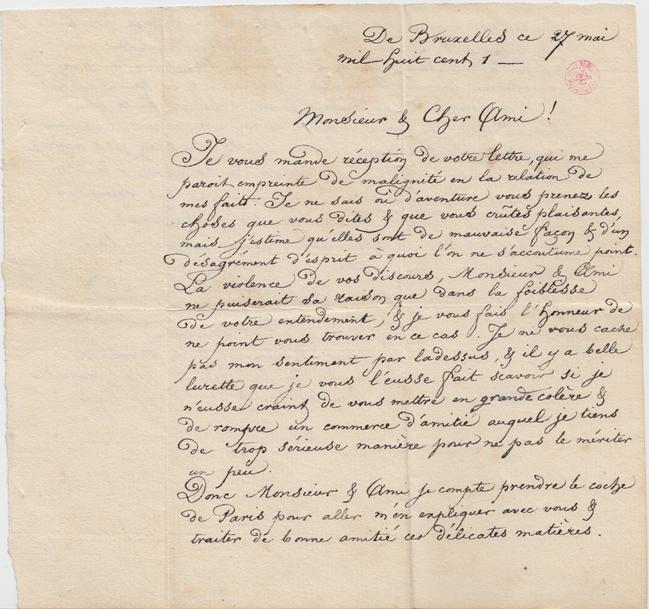 De Bruxelles ce 27 mai
mil huit cent 1 —
Monsieur & Cher Ami !
Je vous mande réception de votre lettre, qui me
paroit empreinte de malignité en la relation de
mes faits. Je ne sais où d'aventure vous prenez les
chôses que vous dites & que vous crûtes plaisantes,
mais j'estime qu'elles sont de mauvaise façon & d'un
désagrement d'esprit à quoi l'on ne s'accoutume point.
La violence de vos discours, Monsieur & Ami
ne puiserait sa raison que dans la foiblesse
de votre entendement, & je vous fais l'honneur de
ne point vous trouver en ce cas. Je ne vous cache
pas mon sentiment par ladessus, & il y a belle
lurette que je vous l'eusse fait scavoir si je
n'eusse craint de vous mettre en grande colère &
de rompre un commerce d'amitié auquel je tiens
de trop sérieuse manière pour ne pas le mériter
un peu.
Donc Monsieur & Ami je compte prendre le coche
de Paris pour aller m'en expliquer avec vous &
traiter de bonne amitié ces délicates matières.